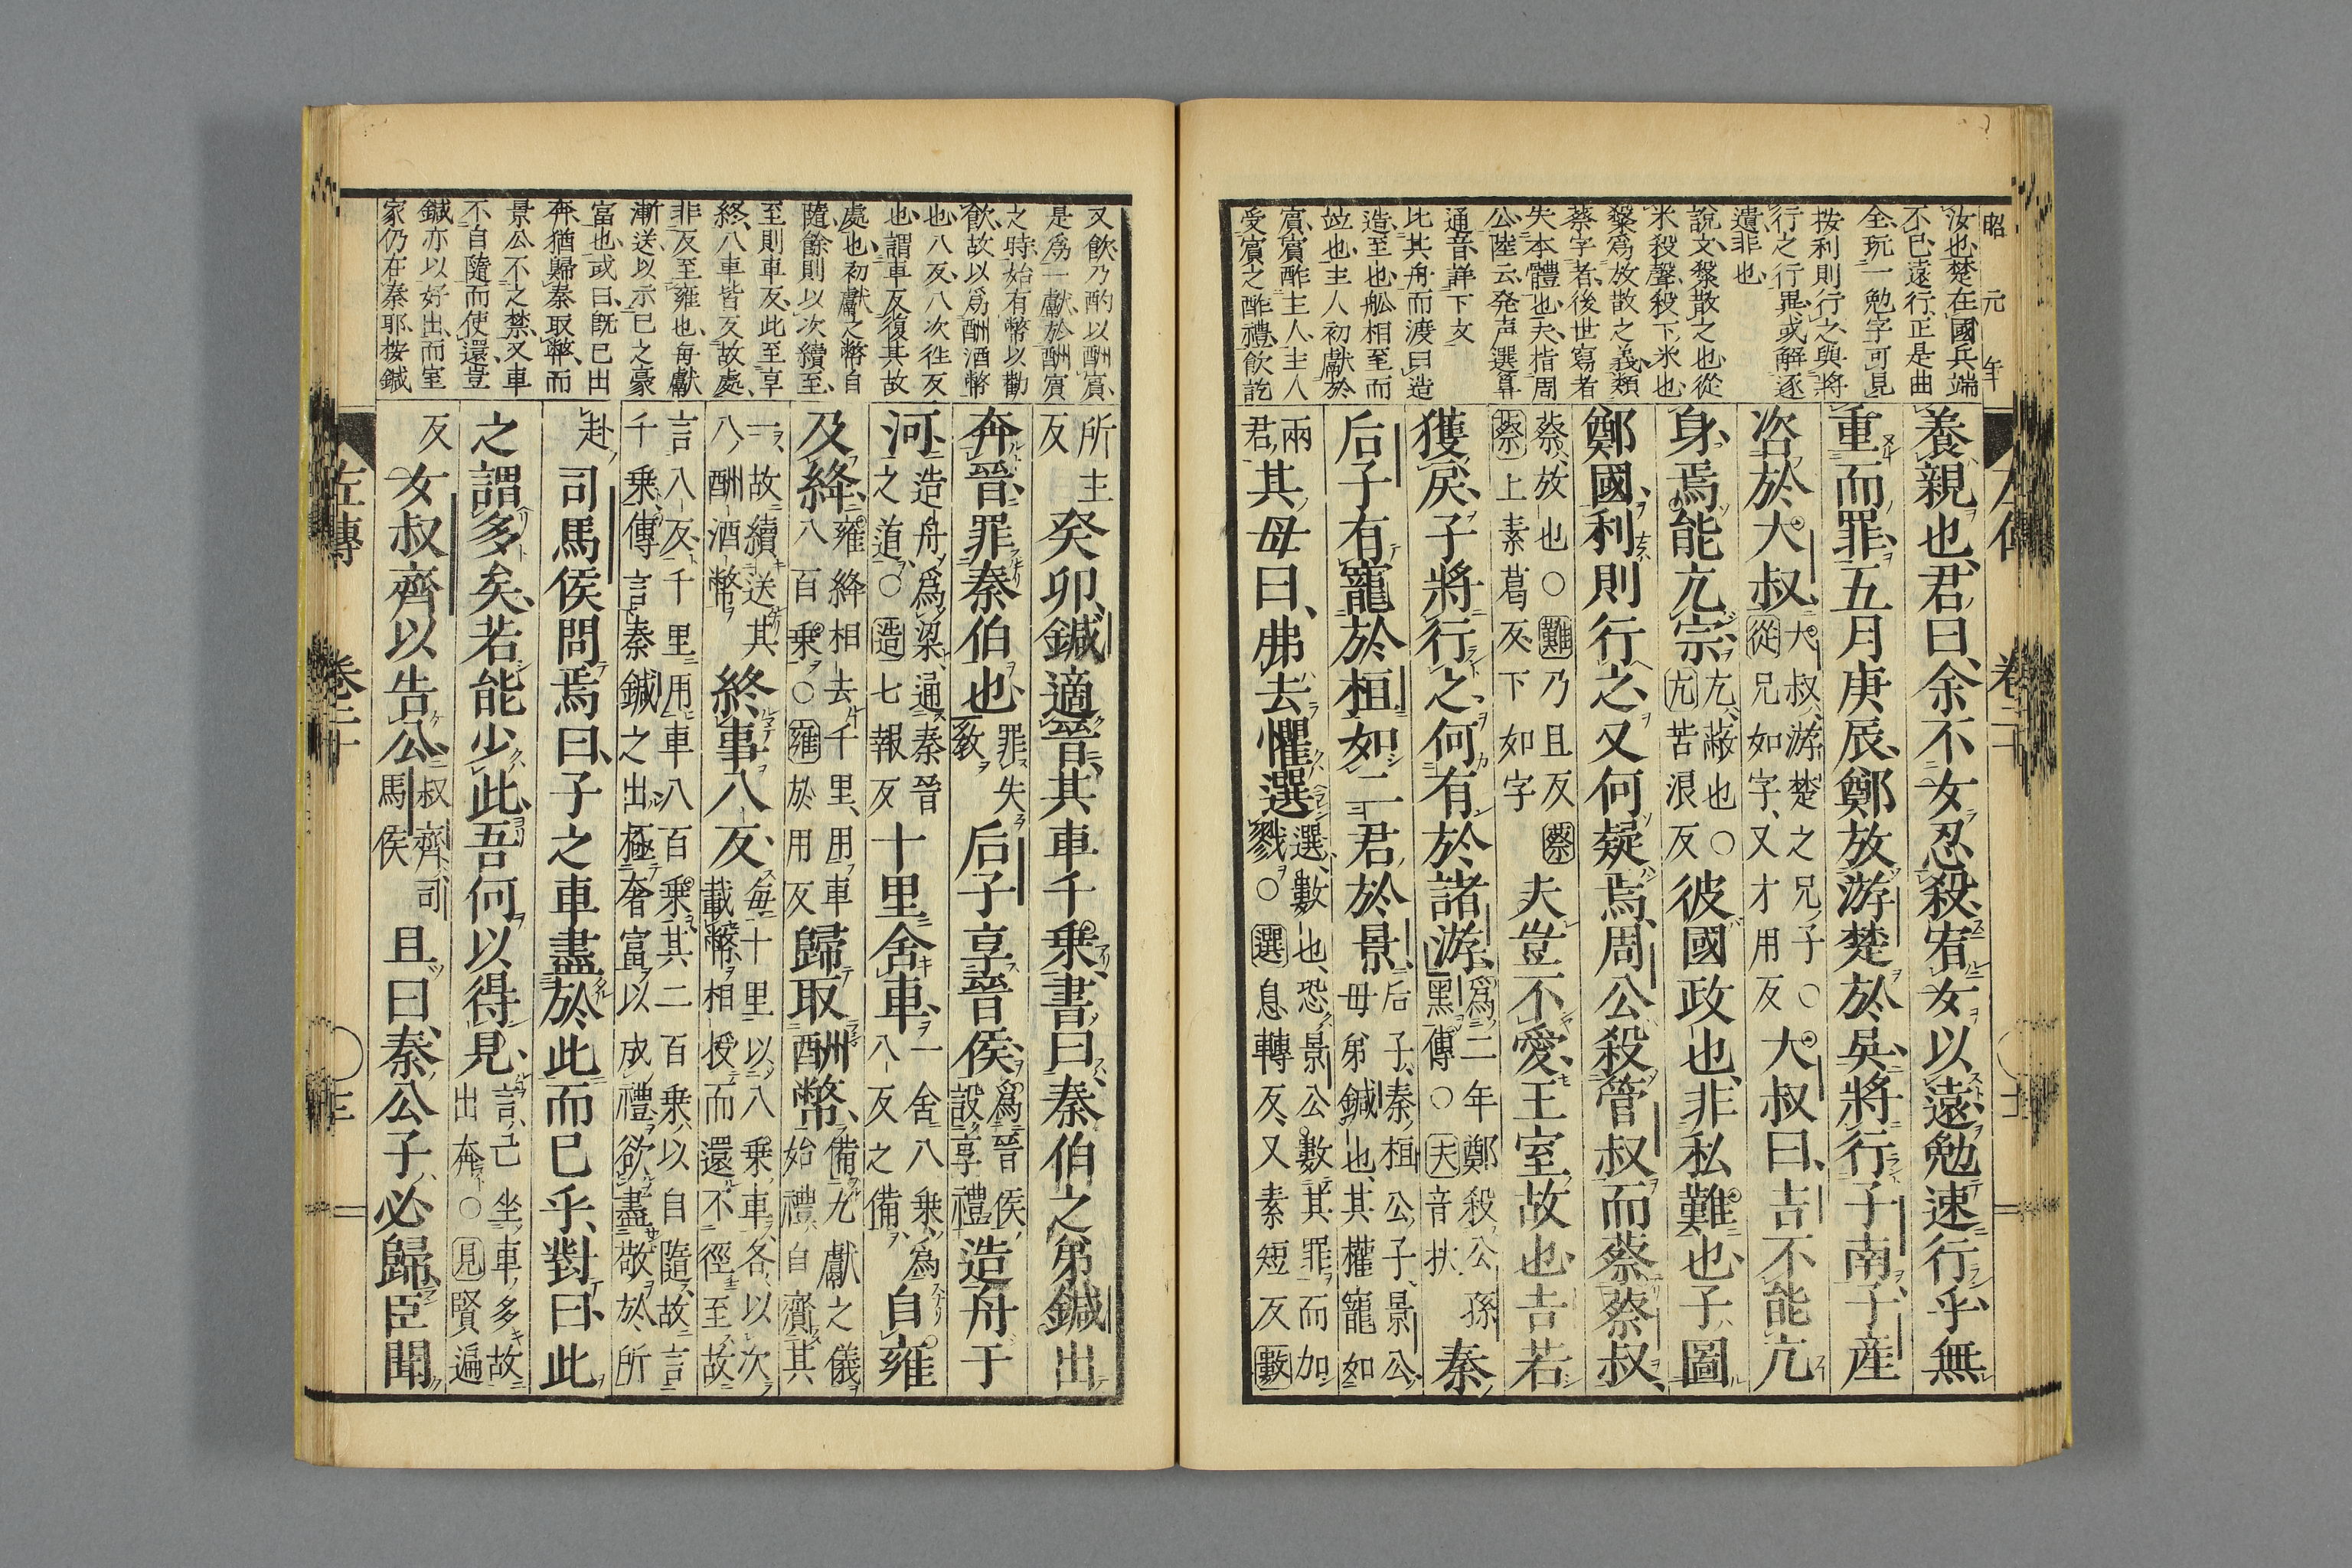 昭元年
汝也楚在國兵端
不已遠行正是曲
全玩一勉字可見
按利則行之與將
行之行異或解逐
遺非也
説文䊝散之也從
米殺聲殺下米也
䊝爲放散之義類
蔡字者後世寫者
失本體也夫指周
公陸云発声選算
通音詳下文
比其舟而渡曰造
造至也舩相至而
竝也主人初獻於
賓賓酢主人主人
愛賓之酢禮飲訖
養親也君曰余不女忍殺宥女以遠勉速行乎無
重而罪五月庚辰鄭放游楚於吳將行子南子產
咨於大叔大叔游楚之兄子○從兄如字又才用反大叔曰吉不能亢
身焉能亢宗亢蔽也○亢苦浪反彼國政也非私難也子圖
鄭國利則行之又何疑焉周公殺管叔而蔡蔡叔
蔡放也○難乃且反蔡蔡上素葛反下如字夫豈不愛王室故也吉若
獲戾子將行之何有於諸游爲二年鄭殺公孫黑傳○夫音扶秦
后子有寵於桓如二君於景后子秦桓公子景公母弟鍼也其權寵如
兩君其母曰弗去懼選選數也恐景公數其罪而加戮○選息轉反又素短反數
卷二十
又飲乃酌以酬賓
是爲一獻於酬賓
之時始有幣以勸
飲故以爲酬酒幣
也八反八次徃反
也謂車反復其故
處也初獻之幣自
隨餘則以次續至
至則車反此至享
終八車皆反故處
非反至雍也毎獻
漸送以示已之豪
富也或曰既已出
奔猶歸秦取幣而
景公不之禁又車
不自隨而使還豈
鍼亦以好出而室
家仍在秦耶按鍼
所主反癸卯鍼適晉其車千乘書曰秦伯之弟鍼出
奔晉罪秦伯也罪失教后子享晉侯爲晉侯設享禮造舟于
河造舟爲梁通秦晉之道○造七報反十里舍車一舍八乘爲八反之備自雍
及絳雍絳相去千里用車八百乘○雍於用反歸取酬幣備九獻之儀始禮自齎其
一故續送其八酬酒幣終事八反每十里以八乘車各以次載幣相授而還不徑至故
言八反千里用車八百乘其二百乘以自隨故言千乘傳言秦鍼之出極奢富以成禮欲盡敬於所
赴司馬侯問焉曰子之車盡於此而已乎對曰此
之謂多矣若能少此吾何以得見言已坐車多故出奔○見賢遍
反女叔齊以告公叔齊司馬侯且曰秦公子必歸臣聞
左傳 卷二十